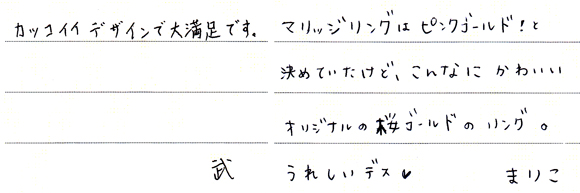 カッコイイデザインで大満足です。
武
マリッジリングはピンクゴールド！と
決めていたけど、こんなに かわいい
オリジナルの桜ゴールドのリング。
うれしいデス♥
まりこ